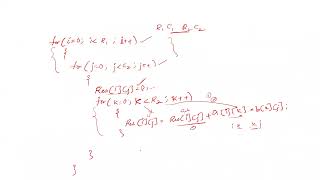 R₁ C₁ R₂ C₂
for(i=0; i<R₁; i++)
{
for(j=0; j<C₂; j++)
{
Res[i][j]=0;
for(k=0; k<R₂; k++)
{
Res[i][j] = Res[i][j] + a[i][k] * b[k][j];
0
ik kj
}
}
}